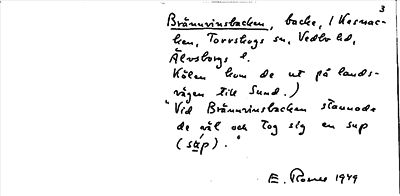 3
Brännvinsbacken, backe, i Kesnac-
ken, Torrskogs sn, Vedbo hd,
Älvsborgs l.
Kölen kom de ut på lands-
vägen till Sund.)
"Vid Brännvinsbacken stannade
de väl och tog sig en sup
(sup)."
E. 1949